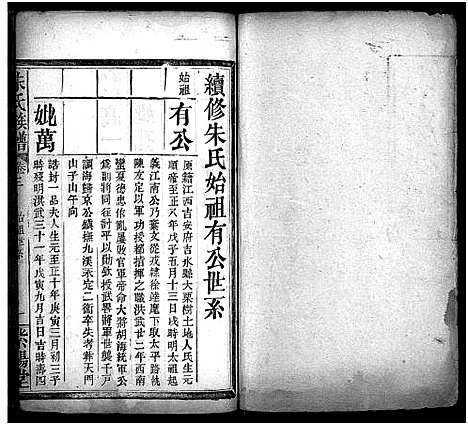 續修朱氏始祖有公世系
始祖
有公
原籍江西吉安府吉水縣大栗樹土地人氏生元
順帝至正八年戊子五月十三日戌時明太祖起
義江南公乃棄文從戎隸徐達麾下取太平路執
陳友定以軍功授都指揮之職洪武廿二年西南
蠻夏德忠作亂屢敗官軍帝命大將胡海統軍公
為副將同征平以勛欽授武畧將軍世襲千戶
調海歸京公鎮撫九溪永定二衛卒失考葬天門
山子山午向
妣萬
誥封一品夫人生元至正十年庚寅三月初三子
時歿明洪武三十一年戊寅九月吉日吉時壽四
朱氏族譜
卷二
始祖世系